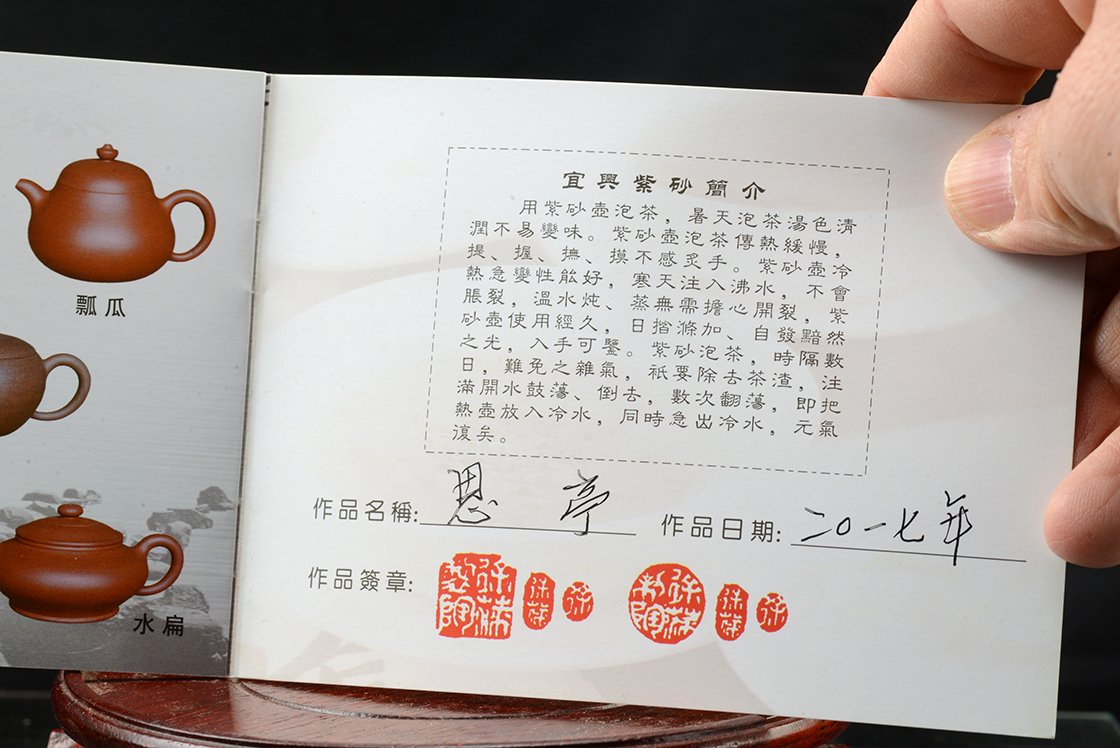 瓢瓜
水扁
宜興紫砂簡介
用紫砂壺泡茶，暑天泡茶湯色清
潤不易變味。紫砂壺泡茶傳熱緩慢，
提、握、撫、摸不感炙手。紫砂壺冷
熱急變性能好，寒天注入沸水，不會
脹裂，溫水炖、蒸無需擔心開裂，紫
砂壺使用經久，日揩滌加、自發黯然
之光，入手可鑒。紫砂泡茶，時隔數
日，難免之雜氣，祇要除去茶渣，注
滿開水鼓蕩、倒去，數次翻蕩，即把
熱壺放入冷水，同時急出冷水，元氣
復矣。
作品名稱:思亭 作品日期:二〇一七年
作品簽章: